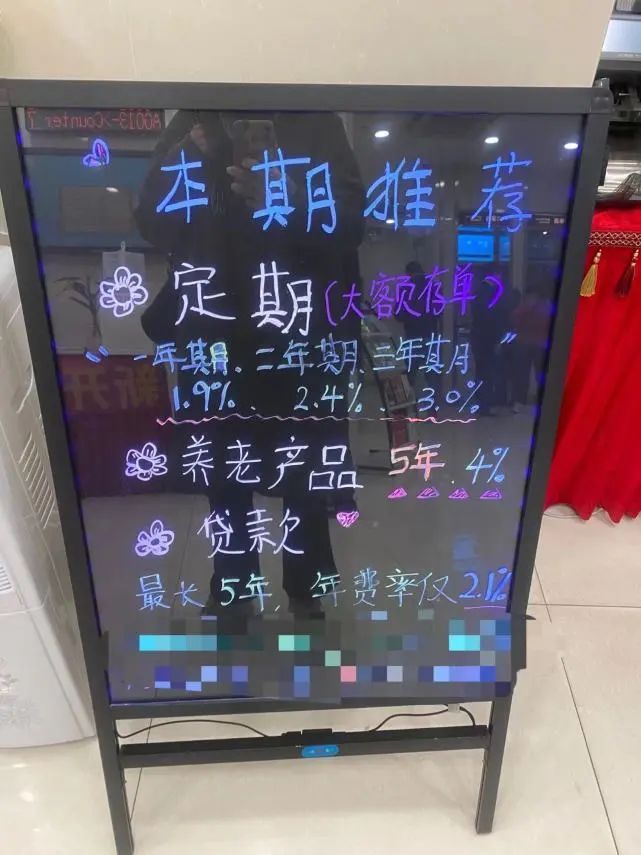 A0013->Counter 7
本期推荐
定期(大额存单)
"一年期、二年期、三年期"
1.9%、2.4%、3.0%
养老产品 5年、4%
贷款
最长5年,年费率仅2.1%
新开